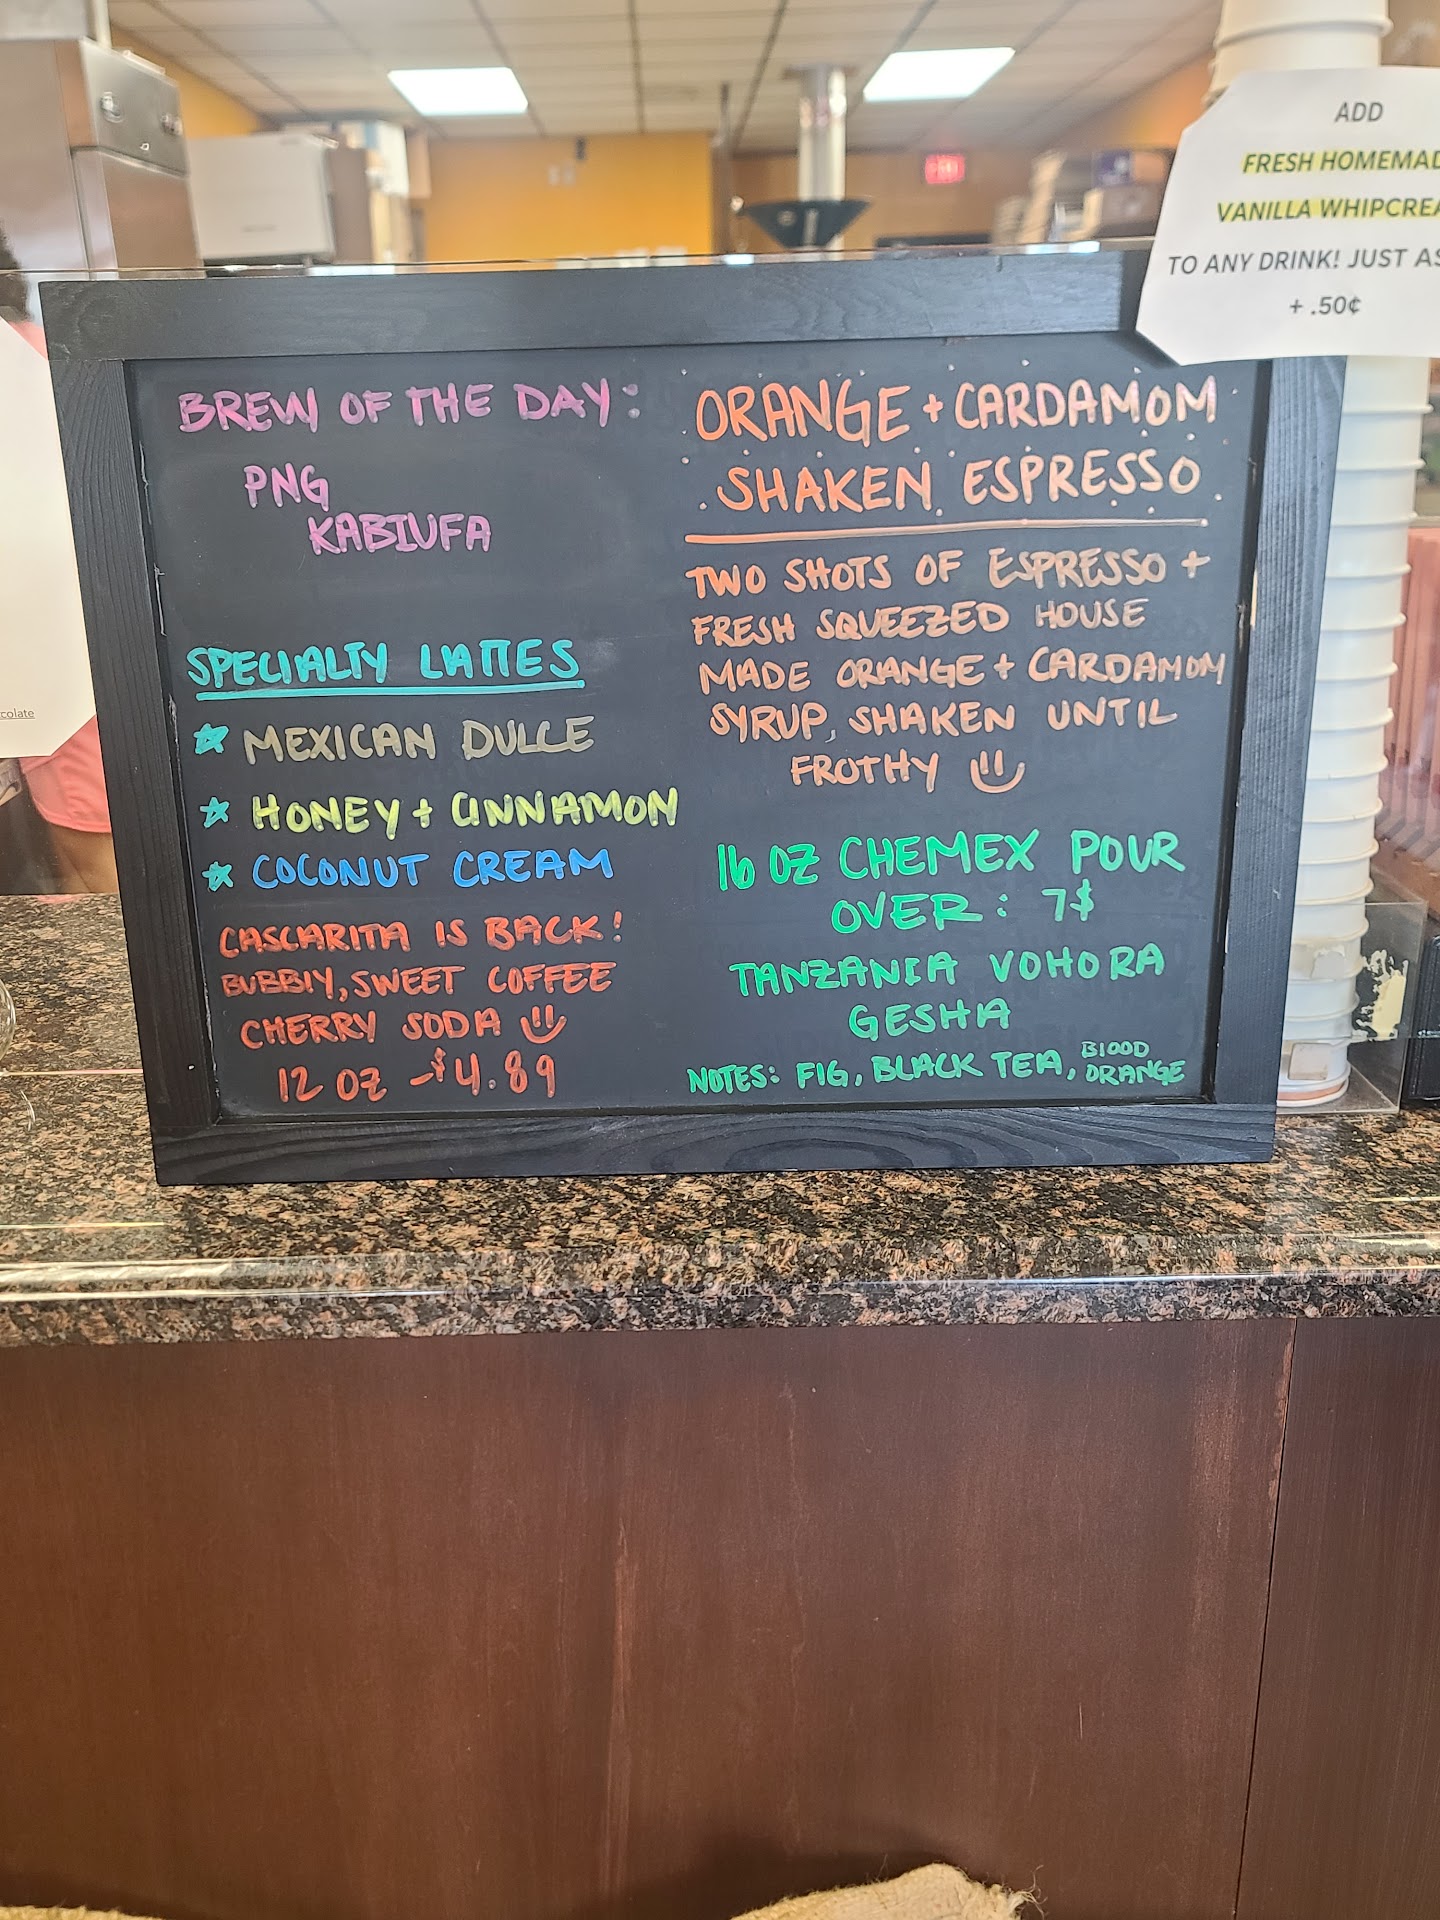 BREW OF THE DAY:
PNG
KABIUFA
SPECIALTY LATTES
MEXICAN DULCE
HONEY + CINNAMON
COCONUT CREAM
CASCARITA IS BACK!
BUBBLY, SWEET COFFEE
CHERRY SODA
12 OZ - $4.89
ORANGE + CARDAMOM
SHAKEN ESPRESSO
TWO SHOTS OF ESPRESSO +
FRESH SQUEEZED HOUSE
MADE ORANGE + CARDAMOM
SYRUP, SHAKEN UNTIL
FROTHY
16 OZ CHEMEX POUR
OVER: 7$
TANZANIA VOHORA
GESHA
NOTES: FIG, BLACK TEA, BLOOD
ORANGE
ADD
FRESH HOMEMAD
VANILLA WHIPCREA
TO ANY DRINK! JUST AS
+ .50¢
colate
EXIT